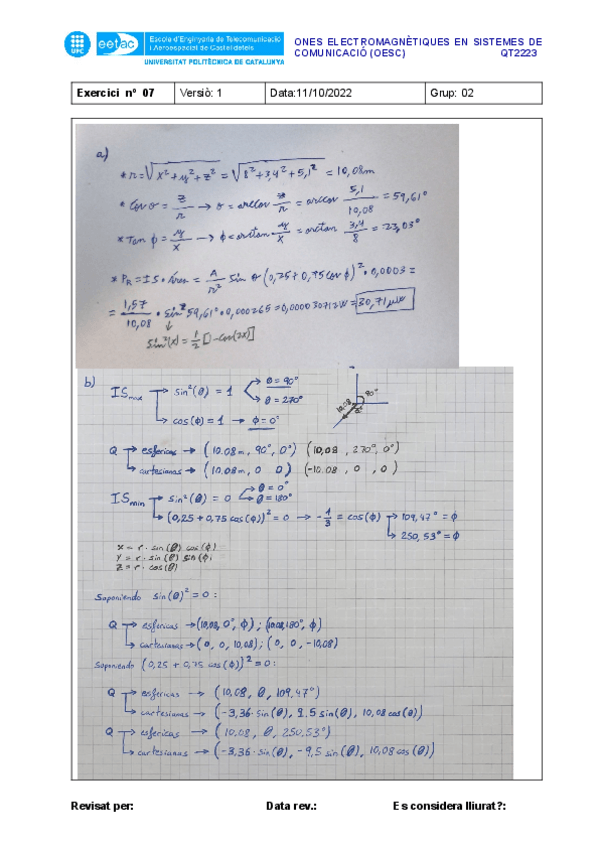 UPC eetac Escola d'Enginyeria de Telecomunicació
i Aeroespacial de Castelldefels
UNIVERSITAT POLITÈCNICA DE CATALUNYA
ONES ELECTROMAGNÈTIQUES EN SISTEMES DE
COMUNICACIÓ (OESC) QT2223
Exercici nº 07 Versiò: 1 Data:11/10/2022 Grup: 02
a)
* r = √x² + y² + z² = √8² + 3,4² + 5,1² = 10,08m
* Cos θ = z/r → θ = arccos z/r = arccos 5,1/10,08 = 59,61°
* Tan ϕ = y/x → ϕ = arctan y/x = arctan 3,4/8 = 23,03°
* P_R = IS · Área = A/r² sin θ (0,25 + 0,75 cos ϕ)² · 0,0003 =
= 1,57/10,08 · sin² 59,61° · 0,000265 = 0,000030712W = 30,71 μW
sin²(x) = 1/2 [1 - cos(2x)]
b) IS max → sin²(θ) = 1 → θ = 90°
→ θ = 270°
→ cos(ϕ) = 1 → ϕ = 0°
10,08 90° 0°
Q → esfericas → (10.08m, 90°, 0°) (10,08, 270°, 0°)
→ cartesianas → (10.08m, 0 0) (-10.08, 0, 0)
IS min → sin²(θ) = 0 → θ = 0°
→ θ = 180°
→ (0,25 + 0,75 cos(ϕ))² = 0 → -1/3 = cos(ϕ) → 109,47° = ϕ
→ 250,53° = ϕ
x = r · sin(θ) cos(ϕ)
y = r · sin(θ) sin(ϕ)
z = r · cos(θ)
Suponiendo sin(θ)² = 0:
Q → esfericas → (10,08, 0°, ϕ); (10,08, 180°, ϕ)
→ cartesianas → (0, 0, 10,08); (0, 0, -10,08)
Suponiendo (0,25 + 0,75 cos(ϕ))² = 0:
Q → esfericas → (10,08, θ, 109,47°)
→ cartesianas → (-3,36·sin(θ), 9.5 sin(θ), 10,08 cos(θ))
Q → esfericas → (10,08, θ, 250,53°)
→ cartesianas → (-3,36·sin(θ), -9,5 sin(θ), 10,08 cos(θ))
Revisat per: Data rev.: Es considera lliurat?: